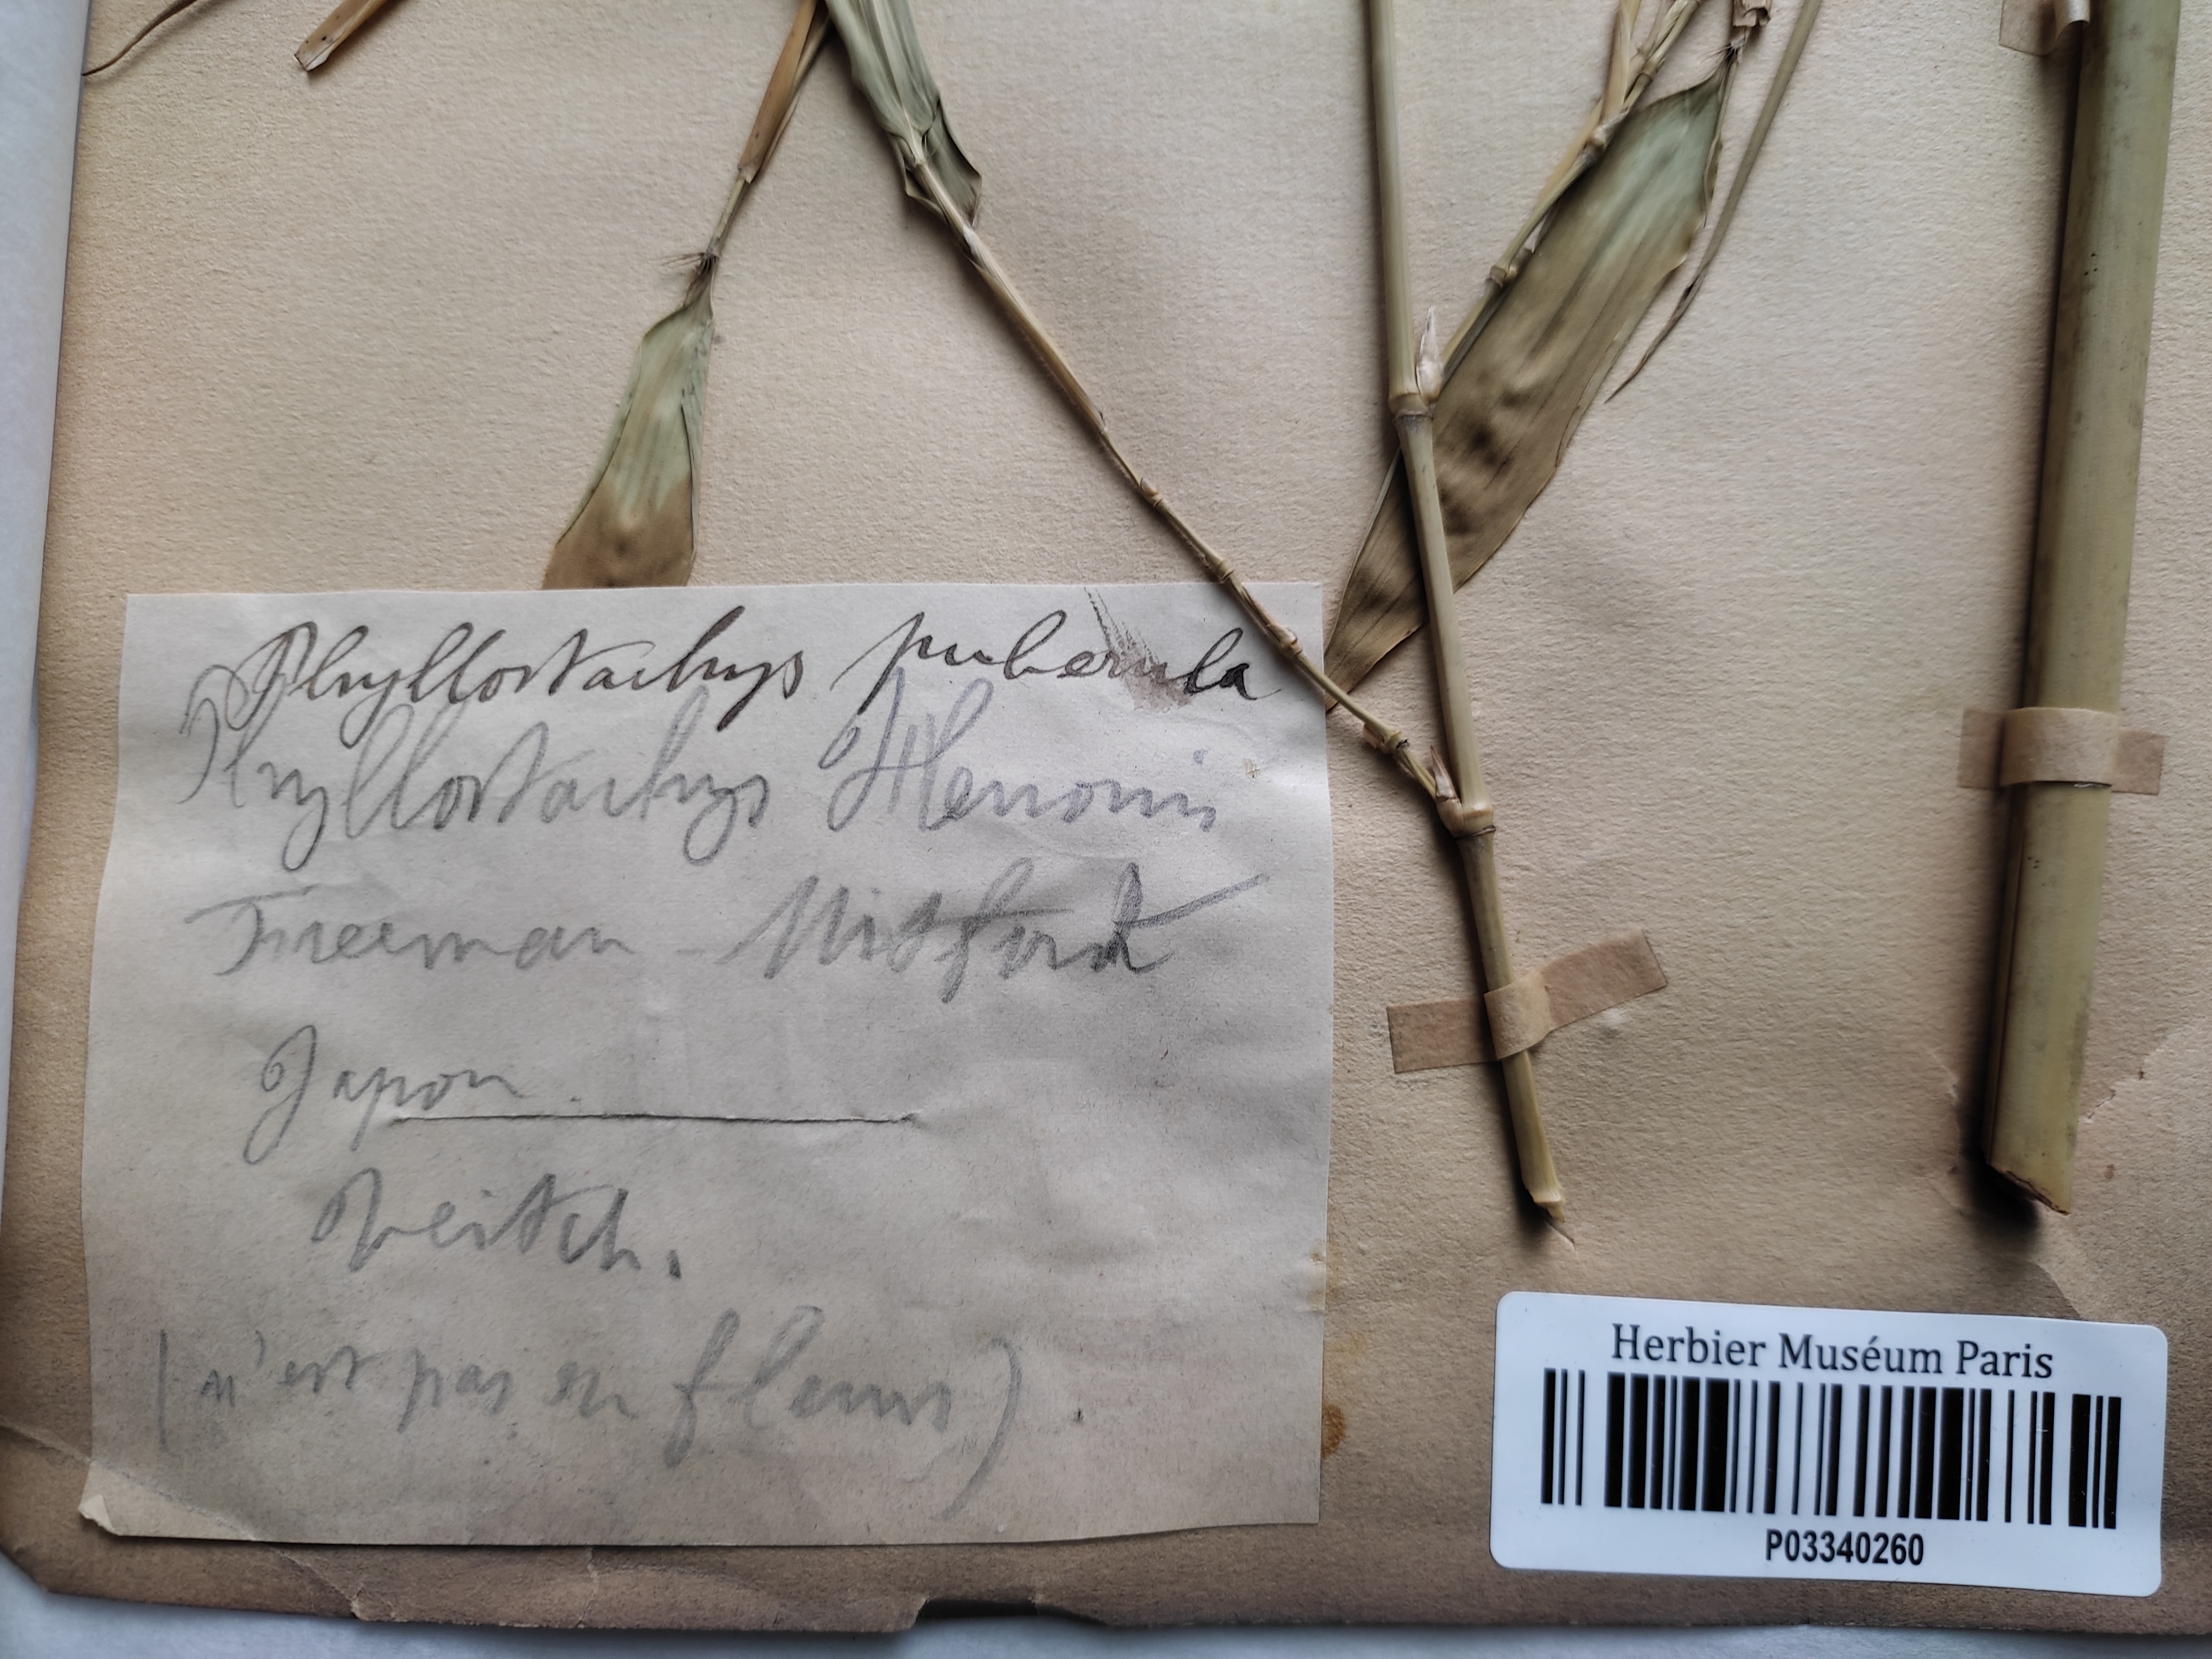 Phyllostachys puberula
Phyllostachys Henonis
Freeman - Mitford
Japon.
Veitch.
(n'est pas en fleurs)
Herbier Muséum Paris
P03340260